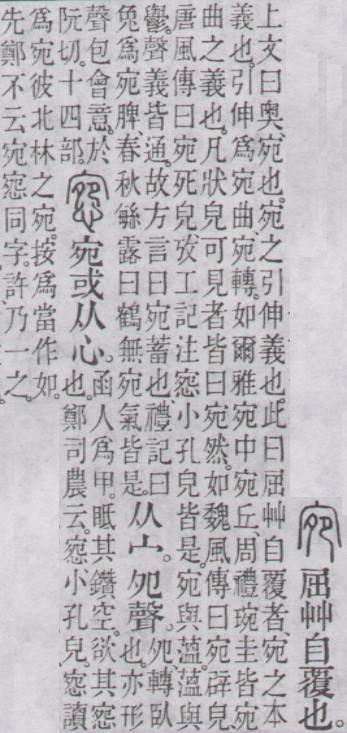 宛 屈艸自覆也。
上文曰奧、宛也。宛之引伸義也。此曰屈艸自覆者、宛之本
義也。引伸爲宛曲、宛轉。如爾雅宛中宛丘、周禮琬圭皆宛
曲之義也。凡狀皃可見者皆曰宛然。如魏風傳曰宛辟皃、
唐風傳曰宛死皃、攷工記注惌小孔皃皆是。宛與薀、薀與
鬱、聲義皆通。故方言曰宛蓄也、禮記曰
兔爲宛脾、春秋緐露曰鶴無宛氣皆是。
从宀。夗聲。
夗、轉臥
也。亦形
聲包會意。於
阮切。十四部。
惌 宛或从心。
函人爲甲。眡其鑽空。欲其惌
也。鄭司農云。惌、小孔皃。惌讀
爲宛彼北林之宛。按爲當作如。
先鄭不云宛惌同字。許乃一之。